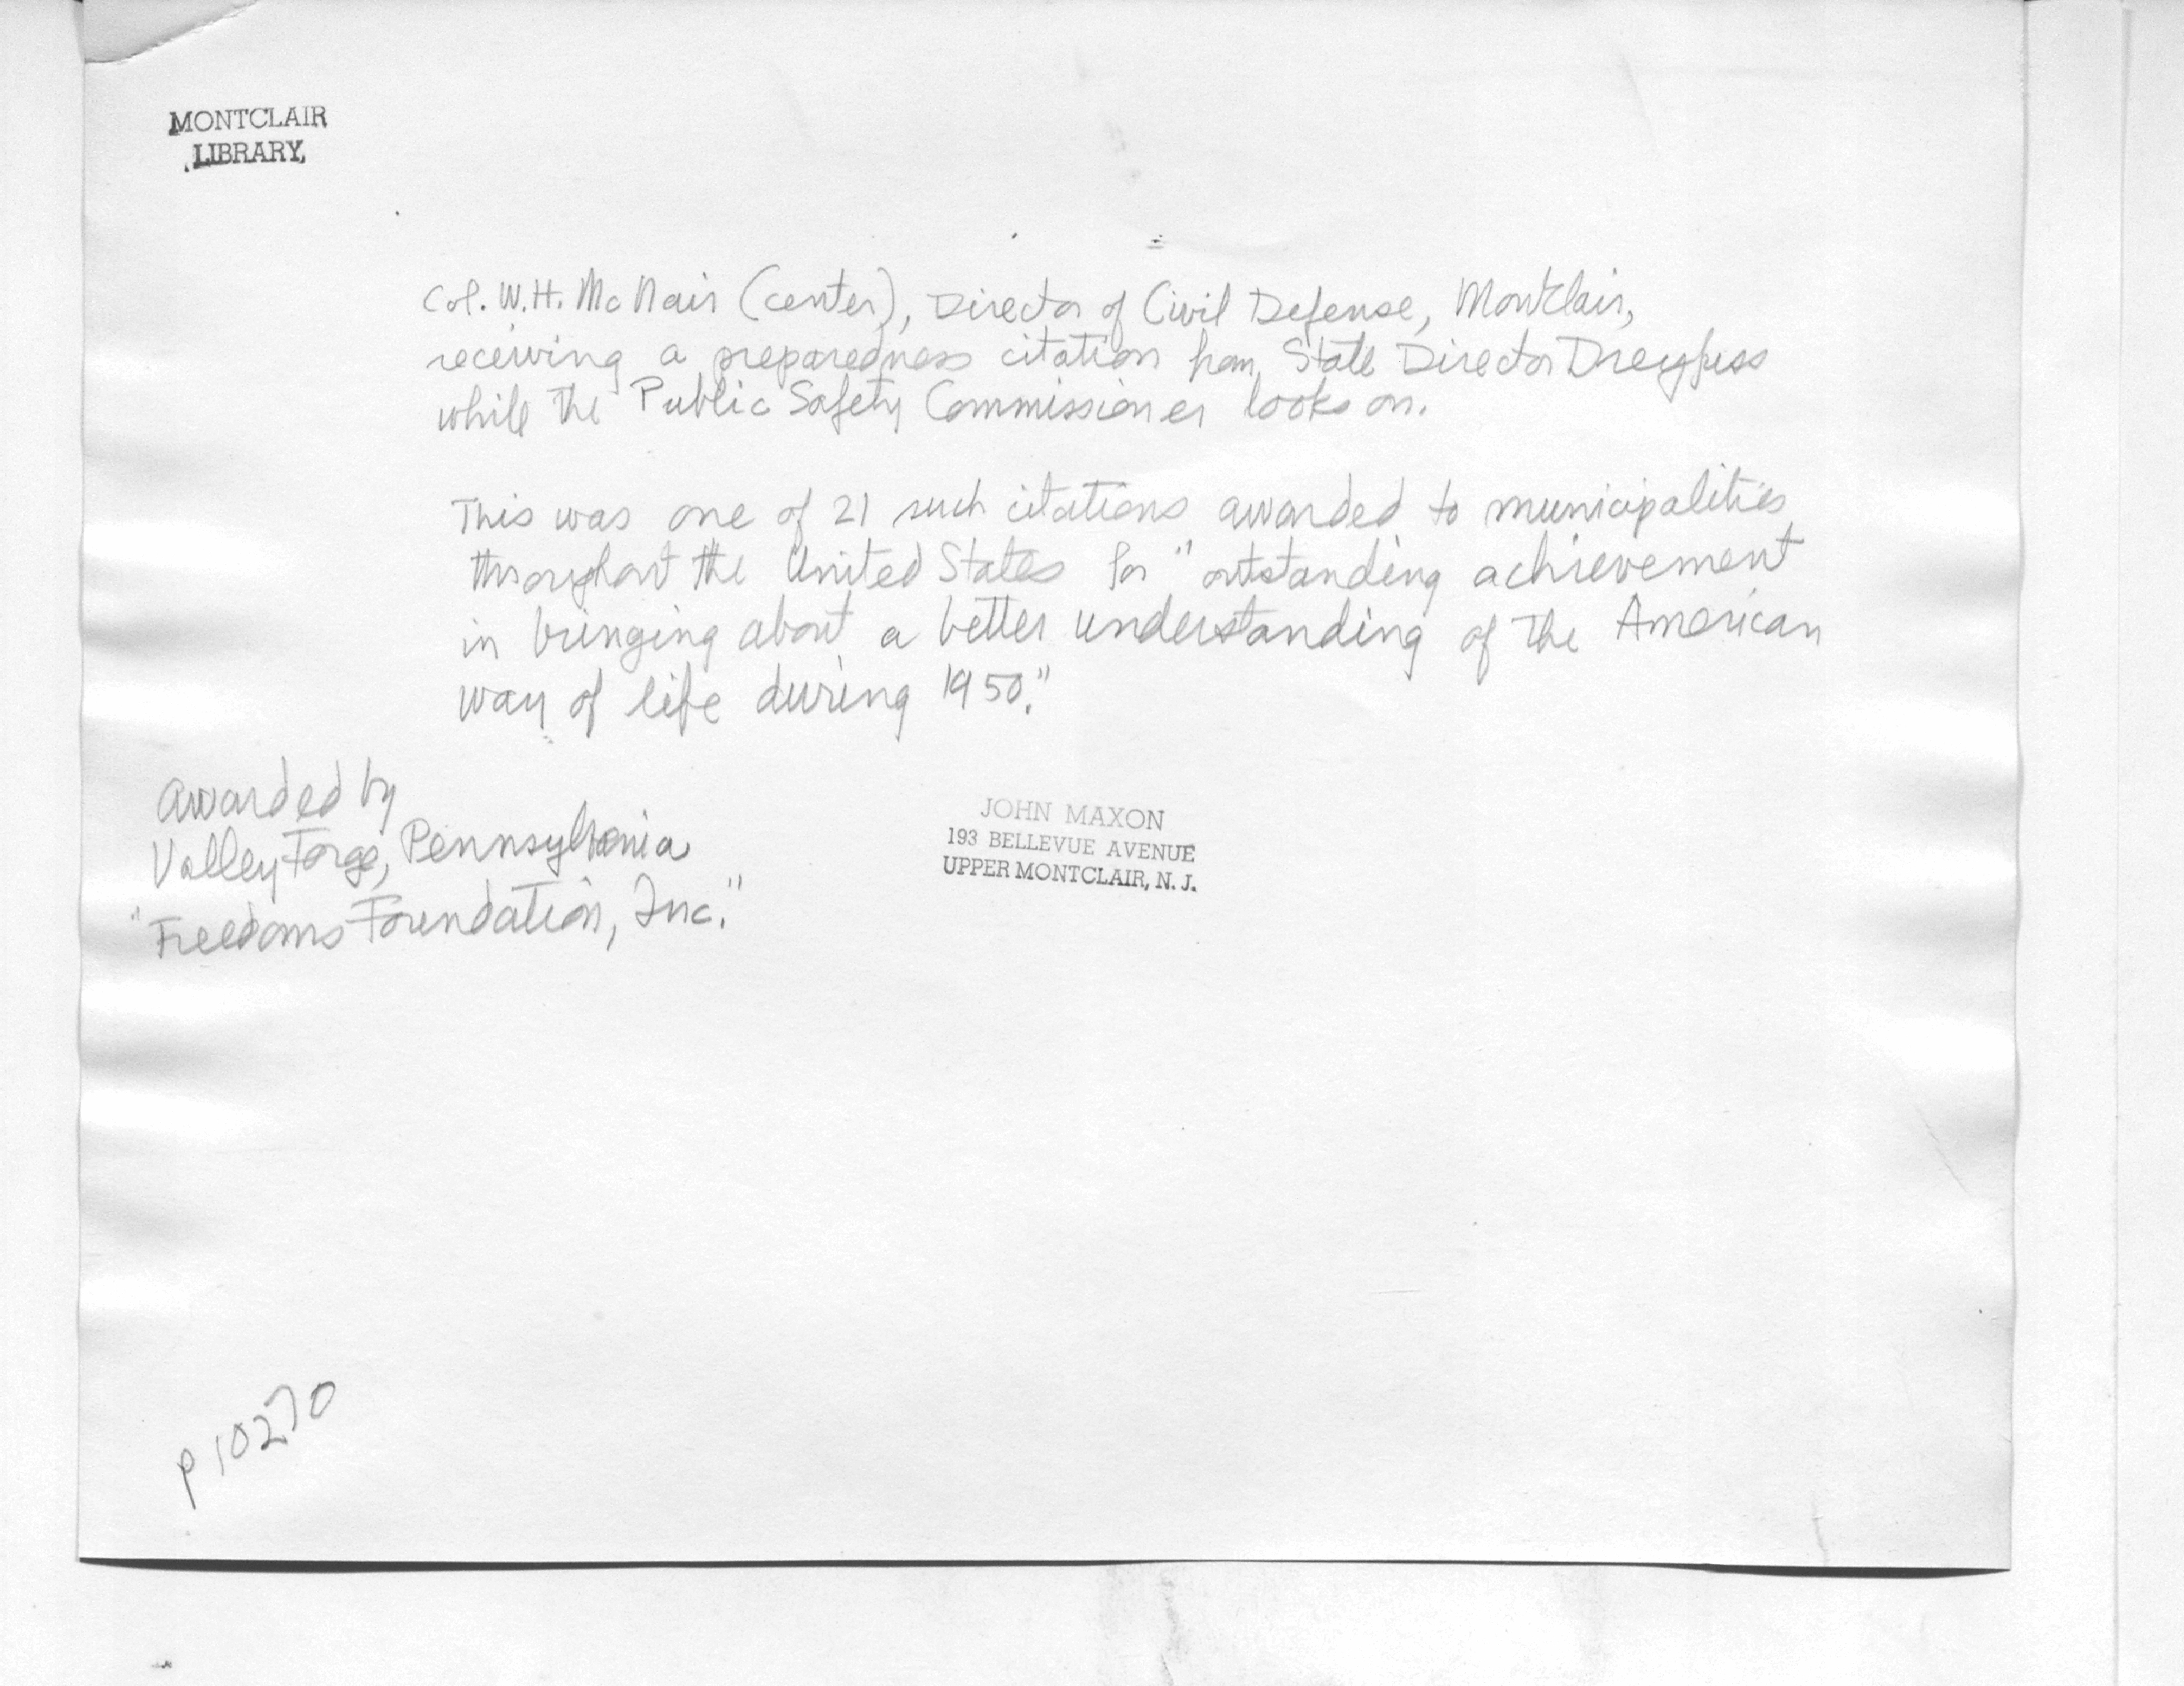 MONTCLAIR
LIBRARY,
Col. W.H. McNair (center), Director of Civil Defense, Montclair,
receiving a preparedness citation from State Director Dreyfuss
while the Public Safety Commissioner looks on.
This was one of 21 such citations awarded to municipalities
throughout the United States for "outstanding achievement
in bringing about a better understanding of the American
way of life during 1950."
awarded by
Valley Forge, Pennsylvania
"Freedoms Foundation, Inc."
JOHN MAXON
193 BELLEVUE AVENUE
UPPER MONTCLAIR, N. J.
p 10270